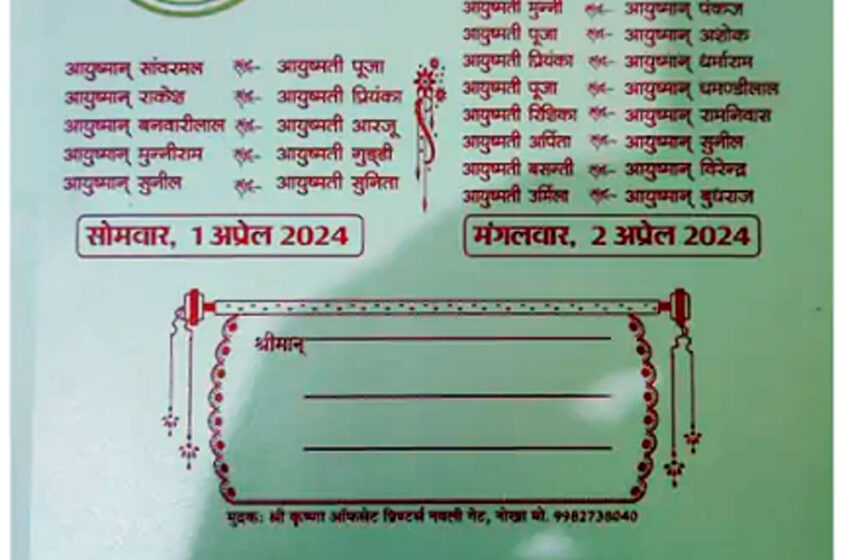 आयुष्मान् सांवरमल संग आयुष्मती पूजा
आयुष्मान् राकेश संग आयुष्मती प्रियंका
आयुष्मान् बनवारीलाल संग आयुष्मती आरजू
आयुष्मान् मुन्नीराम संग आयुष्मती गुड्डी
आयुष्मान् सुनील संग आयुष्मती सुनिता
सोमवार, 1 अप्रेल 2024
आयुष्मती मुन्नी संग आयुष्मान् पंकज
आयुष्मती पूजा संग आयुष्मान् अशोक
आयुष्मती प्रियंका संग आयुष्मान् धर्माराम
आयुष्मती पूजा संग आयुष्मान् घमण्डीलाल
आयुष्मती रिशिका संग आयुष्मान् रामनिवास
आयुष्मती अर्पिता संग आयुष्मान् सुनील
आयुष्मती बसन्ती संग आयुष्मान् विरेन्द्र
आयुष्मती उर्मिला संग आयुष्मान् बुधराज
मंगलवार, 2 अप्रेल 2024
श्रीमान्
मुद्रक: श्री कृष्णा ऑफसेट प्रिण्टर्स नवली गेट, नोखा मो. 9982738040